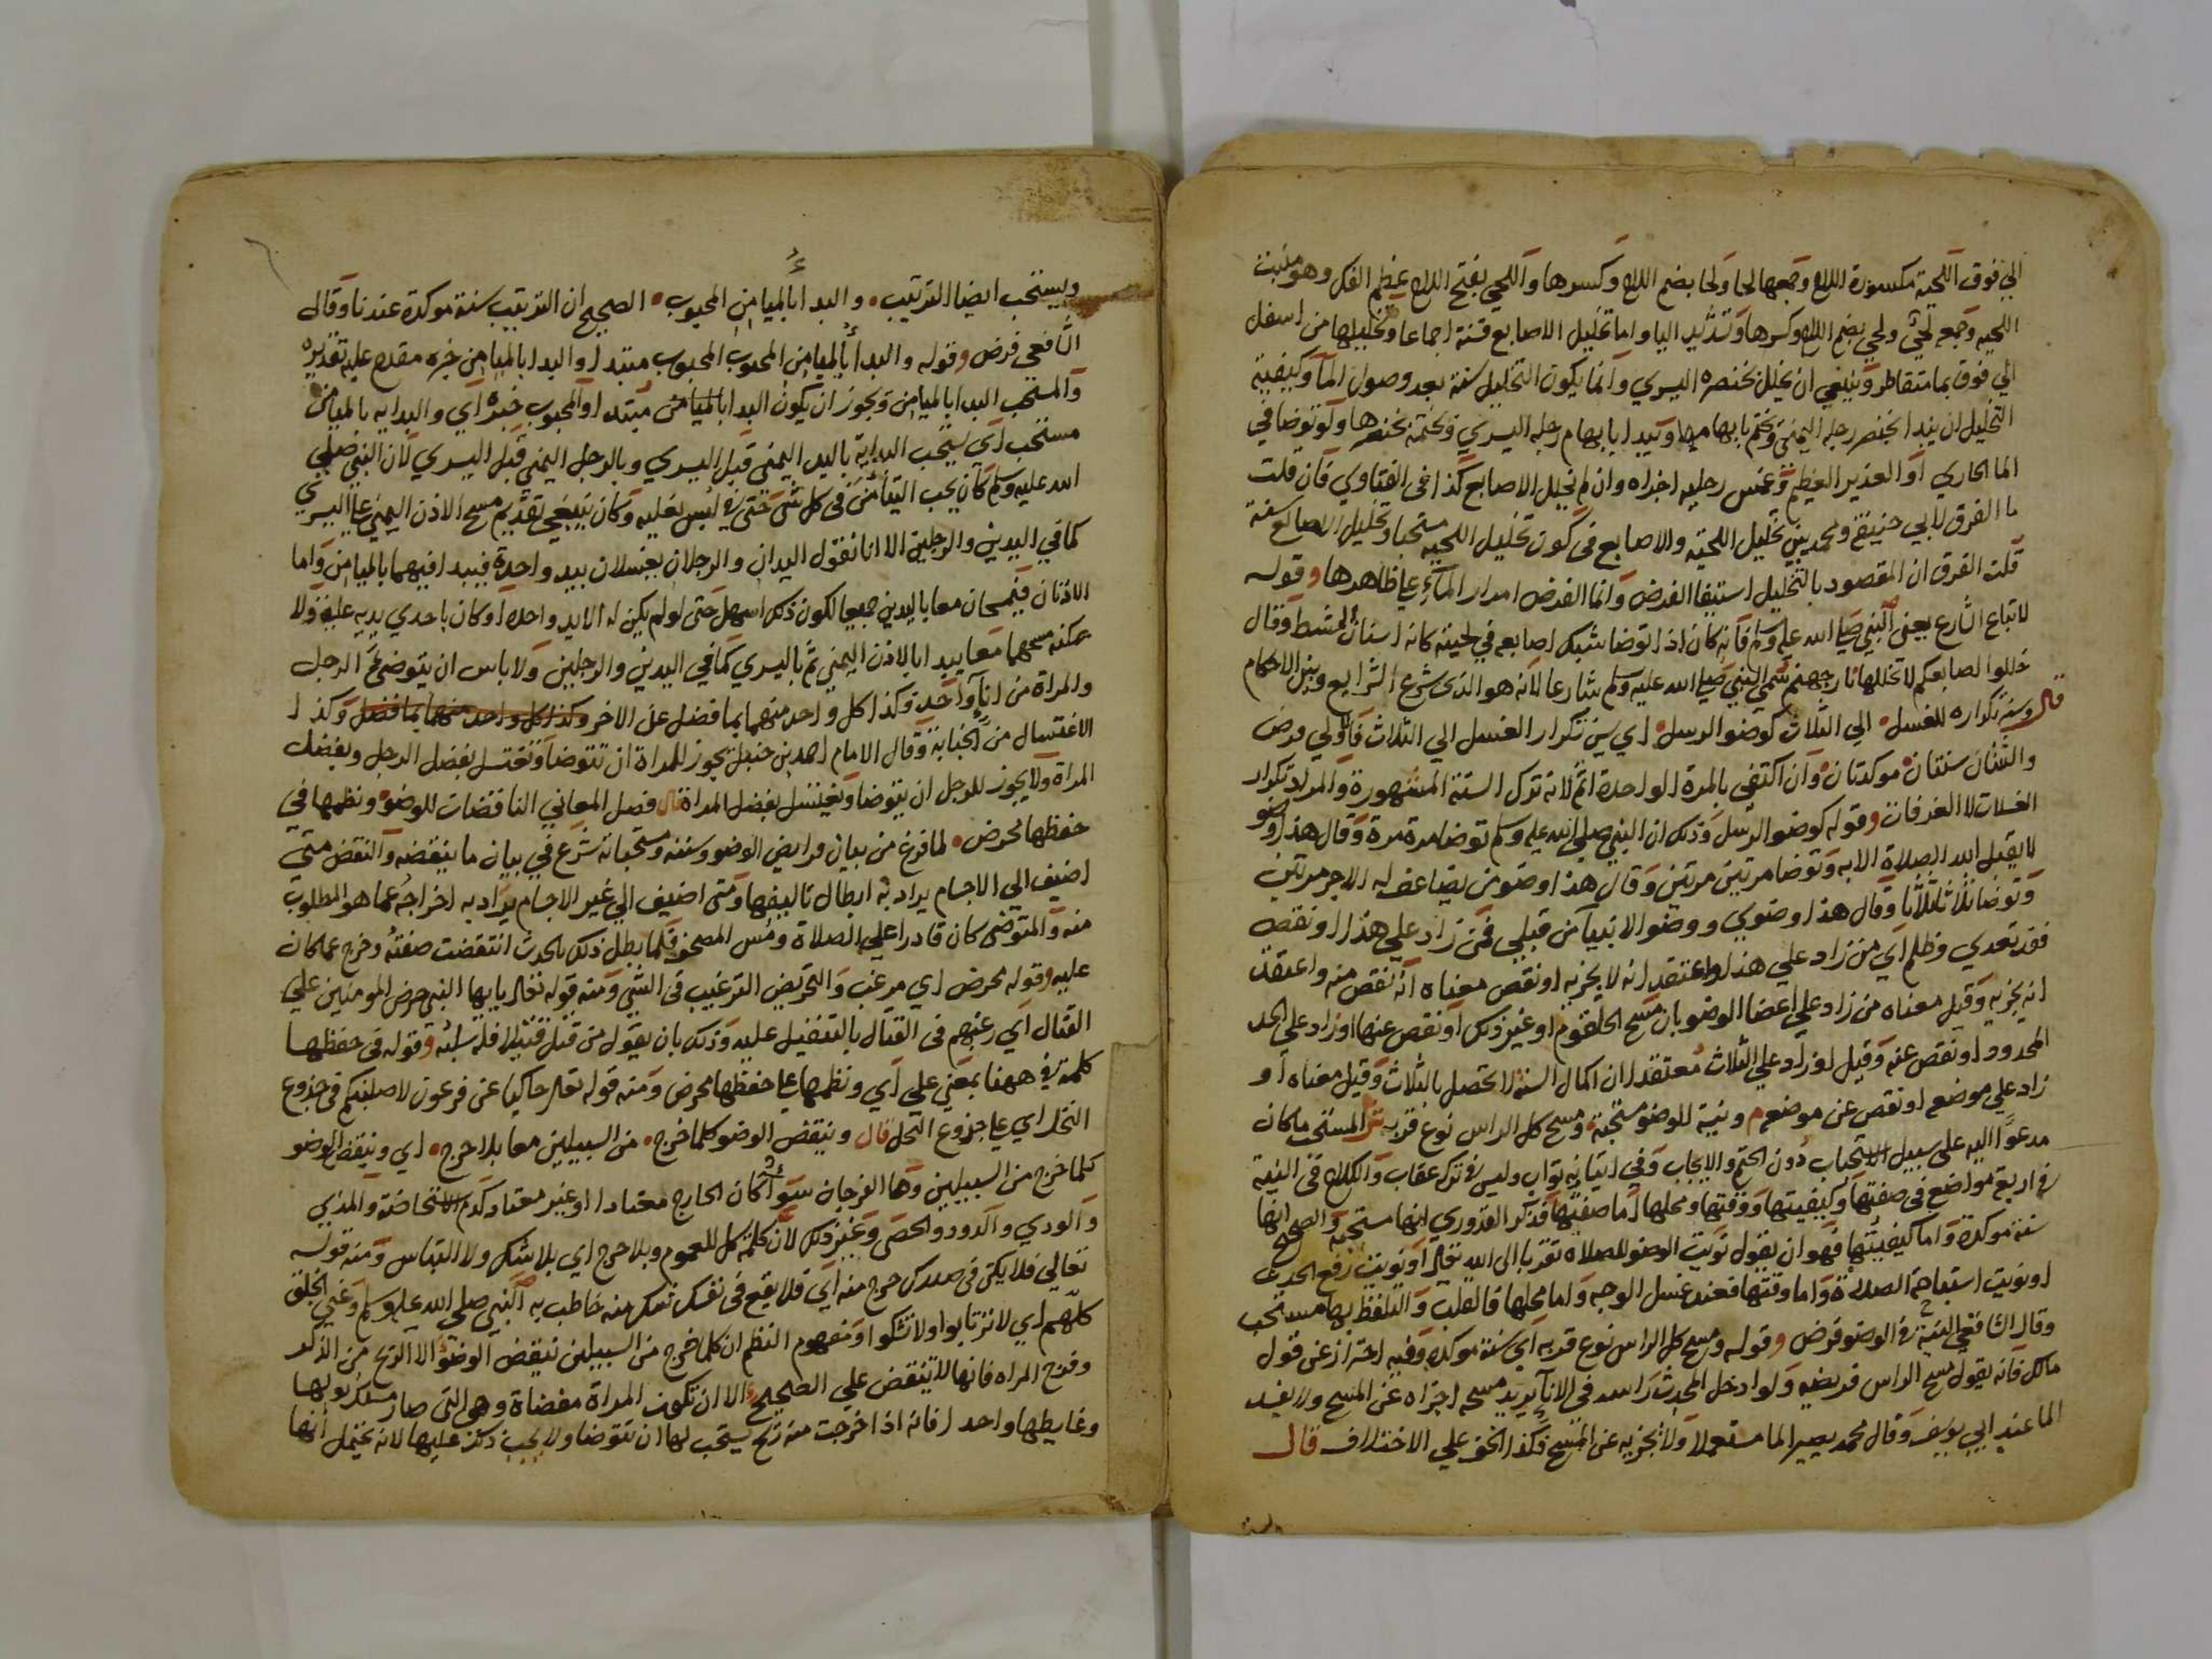 الي فوق اللحية مكسورة اللام وجمعها لحا ولحا بضم اللام وكسرها واللحي بفتح اللام عظم الفك وهو منبت
اللحيه وجمعه لحي ولحي بضم اللام وكسرها وتشديد اليا واما تخليل الاصابع فسنة اجماعا وتخليلها من اسفل
الي فوق بما متقاطر وينبغي ان يخلل بخنصره اليسري وانما يكون التخليل سنة بعد وصول المآ وكيفية
التخليل ان يبدا بخنصر رجله اليمنى ويختم بابهامها ويبدا بابهام رجله اليسري ويختمه بخنصرها ولو توضا في
الما الجاري او الغدير العظيم وغمس رجليه اجزاه وان لم يخلل الاصابع كذا في الفتاوي فان قلت
ما الفرق لابي حنيفة ومحمد بين تخليل اللحية والاصابع في كون تخليل اللحيه مستحبا وتخليل الاصابع سنة
قلت الفرق ان المقصود بالتخليل استيفا الفرض وانما الفرض امرار المآء علي ظاهرها وقوله
لاتباع الشارع يعنى النبي صلي الله عليه وسلم فانه كان اذا توضا شبك اصابعه في لحيته كانه اسنان المشط وقال
خللوا اصابعكم لا تخللها نار جهنم سمي النبي صلي الله عليه وسلم شارعا لانه هو الذى شرع الشرايع وبين الاحكام
قال وسنة تكراره للغسل الي الثلاث كوضو الرسل اي يسن تكرار الغسل الي الثلاث فالاولي فرض
والثنتان سنتان موكدتان وان اكتفى بالمرة الواحدة اثم لانه ترك السنة المشهورة والمراد تكرار
الغسلات لا الغرفات وقوله كوضو الرسل وذلك ان النبي صلي الله عليه وسلم توضا مرة مرة وقال هذا وضو
لا يقبل الله الصلاة الا به وتوضا مرتين مرتين وقال هذا وضو من يضاعف له الاجر مرتين
وتوضا ثلاثا ثلاثا وقال هذا وضوي ووضو الانبيآ من قبلي فمن زاد علي هذا او نقص
فقد تعدي وظلم اي من زاد علي هذا واعتقد انه لا يجزيه او نقص معناه انه نقص منه واعتقد
انه يجزيه وقيل معناه من زاد علي اعضا الوضو بان مسح الحلقوم او غير ذلك او نقص عنها او زاد علي الحد
المحدود او نقص عنه وقيل لو زاد علي الثلاث معتقدا ان اكمال السنة لا يحصل بالثلاث وقيل معناه او
زاد علي موضع او نقص عن موضع م ونية للوضو مستحبة ومسح كل الراس نوع قربه ش المستحب ما كان
مدعوا اليه على سبيل الاستحباب دون الحتم والايجاب وفي اتيانه ثواب وليس في تركه عقاب والكلام في النية
في اربع مواضع في صفتها وكيفيتها ووقتها ومحلها اما صفتها فذكر القدوري انها مستحبة والصحيح انها
سنة موكدة واما كيفيتها فهو ان يقول نويت الوضو للصلاه تقربا الى الله تعالي او نويت رفع الحدث
او نويت استباحة الصلاة واما وقتها فعند غسل الوجه واما محلها فالقلب والتلفظ بها مستحب
وقال الشافعي النية في الوضو فرض وقوله ومسح كل الراس نوع قربه اي سنة موكدة وفيه احتراز عن قول
مالك فانه يقول مسح الراس فريضه ولو ادخل المحدث راسه في الانآء يريد مسحه اجزاه عن المسح ولا يفسد
الما عند ابي يوسف وقال محمد يصير الما مستعملا ولا يجزيه عن المسح فكذا الخف علي الاختلاف قال
ويستحب ايضا الترتيب والبدا بالميامن المحبوب الصحيح ان الترتيب سنة موكدة عندنا وقال
الشافعي فرض وقوله والبدا بالميامن المحبوب المحبوب مبتدا والبدا بالميامن خبره مقدم عليه تقديره
والمستحب البدا بالميامن ويجوز ان يكون البدا بالميامن مبتدا والمحبوب خبره اي والبدايه بالميامن
مستحب اى يستحب البداية باليد اليمنى قبل اليسري وبالرجل اليمنى قبل اليسري لان النبي صلي
الله عليه وسلم كان يحب التيامن في كل شى حتى في لبس نعليه وكان ينبغي تقديم مسح الاذن اليمنى علي اليسري
كما في اليدين والرجلين الا انا نقول اليدان والرجلان يغسلان بيد واحدة فيبدا فيهما بالميامن واما
الاذنان فيمسحان معا باليدين جميعا لكون ذلك اسهل حتى لو لم يكن له الا يد واحدة او كان باحدي يديه علة ولا
يمكنه مسحهما معا يبدا بالاذن اليمنى ثم باليسري كما في اليدين والرجلين ولا باس ان يتوضى الرجل
والمراة من انآء واحد وكذا كل واحد منهما بما فضل عن الاخر وكذا كل واحد منهما بما فضل وكذا
الاغتسال من الجنابة وقال الامام احمد بن حنبل يجوز للمراة ان تتوضا وتغتسل بفضل الرجل وبفضل
المراة ولا يجوز للرجل ان يتوضا ويغتسل بفضل المراة قال فصل المعاني الناقضات للوضو ونظمها في
حفظها محرض لما فرغ من بيان فرايض الوضو وسننه ومستحباته شرع في بيان ما ينقضه والنقض متى
اضيف الي الاجسام يراد به ابطال تاليفها ومتى اضيف الي غير الاجسام يراد به اخراجه عما هو المطلوب
منه والمتوضى كان قادرا علي الصلاة ومس المصحف فلما بطل ذلك بالحدث انتقضت صفته وخرج عما كان
عليه وقوله محرض اي مرغب والتحريض الترغيب في الشي ومنه قوله تعالي يايها النبي حرض المومنين علي
القتال اي رغبهم في القتال بالتنفيل عليه وذلك بان يقول من قتل قتيلا فله سلبه وقوله في حفظها
كلمة في ههنا بمعنى علي اي ونظمها علي حفظها محرض ومنه قوله تعالي حاكيا عن فرعون لاصلبنكم في جذوع
النخل اي علي جذوع النخل قال وينقض الوضو كلما خرج من السبيلين معا بلا حرج اي وينقض الوضو
كلما خرج من السبيلين وهما الفرجان سوآ كان الخارج معتادا او غير معتاد كدم الاستحاضة والمذي
والودي والدود والحصى وغير ذلك لان كلمة كل للعموم وبلا حرج اي بلا شك ولا التباس ومنه قوله
تعالي فلا يكن في صدرك حرج منه اي فلا يقع في نفسك شك منه خاطب به النبي صلى الله عليه وسلم وعني الخلق
كلهم اي لا ترتابوا ولا تشكوا ومفهوم النظم ان كلما خرج من السبيلين ينقض الوضو الا الريح من الذكر
وفرج المراه فانها لا تنقض علي الصحيح الا ان تكون المراة مفضاة وهي التي صار مسلك بولها
وغايطها واحدا فانه اذا خرجت منه ريح يستحب لها ان تتوضا ولا يجب ذلك عليها لانه يحتمل انها